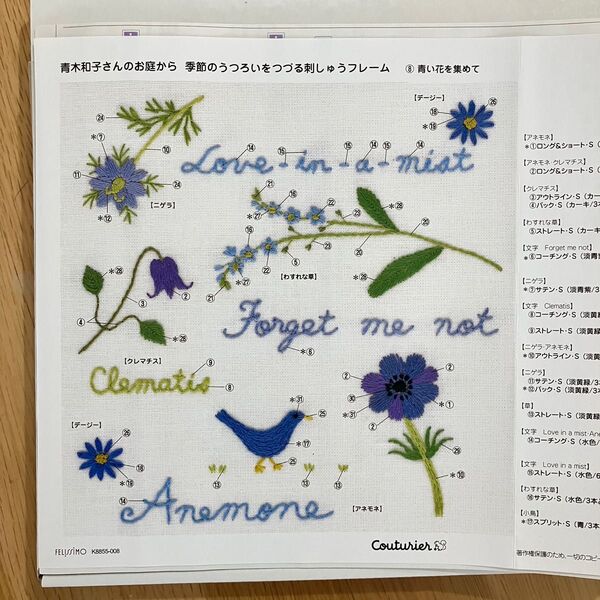 青木和子さんのお庭から 季節のうつろいをつづる刺しゅうフレーム ⑧ 青い花を集めて
【デージー】
Love-in-a-mist
【ニゲラ】
【わすれな草】
Forget me not
【クレマチス】
Clematis
【デージー】
Anemone
【アネモネ】
FELISSIMO K8855-008
Couturier
【アネモネ】
*①ロング&ショート・S
【アネモネ クレマチス】
②ロング&ショート・S
【クレマチス】
③アウトライン・S(カーキ/
④バック・S(カーキ/3本
【わすれな草】
⑤ストレート・S(カーキ/
【文字 Forget me not】
*⑥コーチング・S(淡青紫/
【ニゲラ】
*⑦サテン・S(淡青紫/3
【文字 Clematis】
⑧コーチング・S(淡黄緑
⑨ストレート・S(淡黄緑
【ニゲラ・アネモネ】
*⑩アウトライン・S(淡黄
【ニゲラ】
⑪サテン・S(淡黄緑/3
*⑫バック・S(淡黄緑/3
【草】
⑬ストレート・S(淡黄緑/
【文字 Love in a mist・An
⑭コーチング・S(水色/
【文字 Love in a mist】
⑮ストレート・S(水色/6
【わすれな草】
⑯サテン・S(水色/3本
【小鳥】
*⑰スプリット・S(青/3本
著作権保護のため、一切のコピー